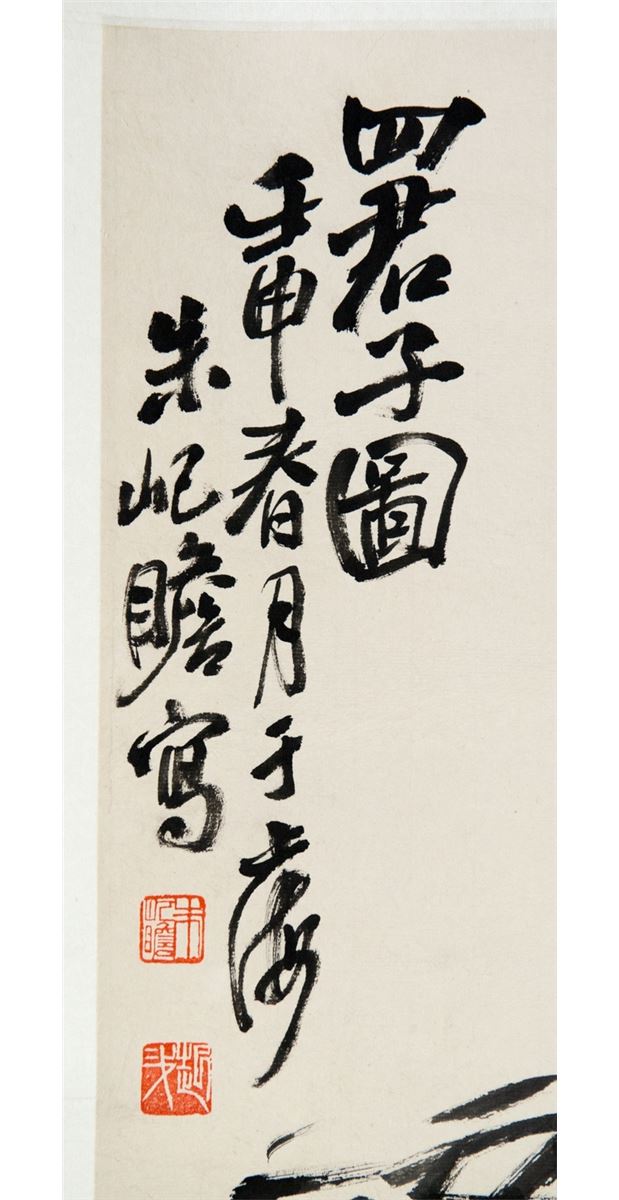 四君子圖
壬申春月于上海
朱屺瞻寫
朱屺瞻